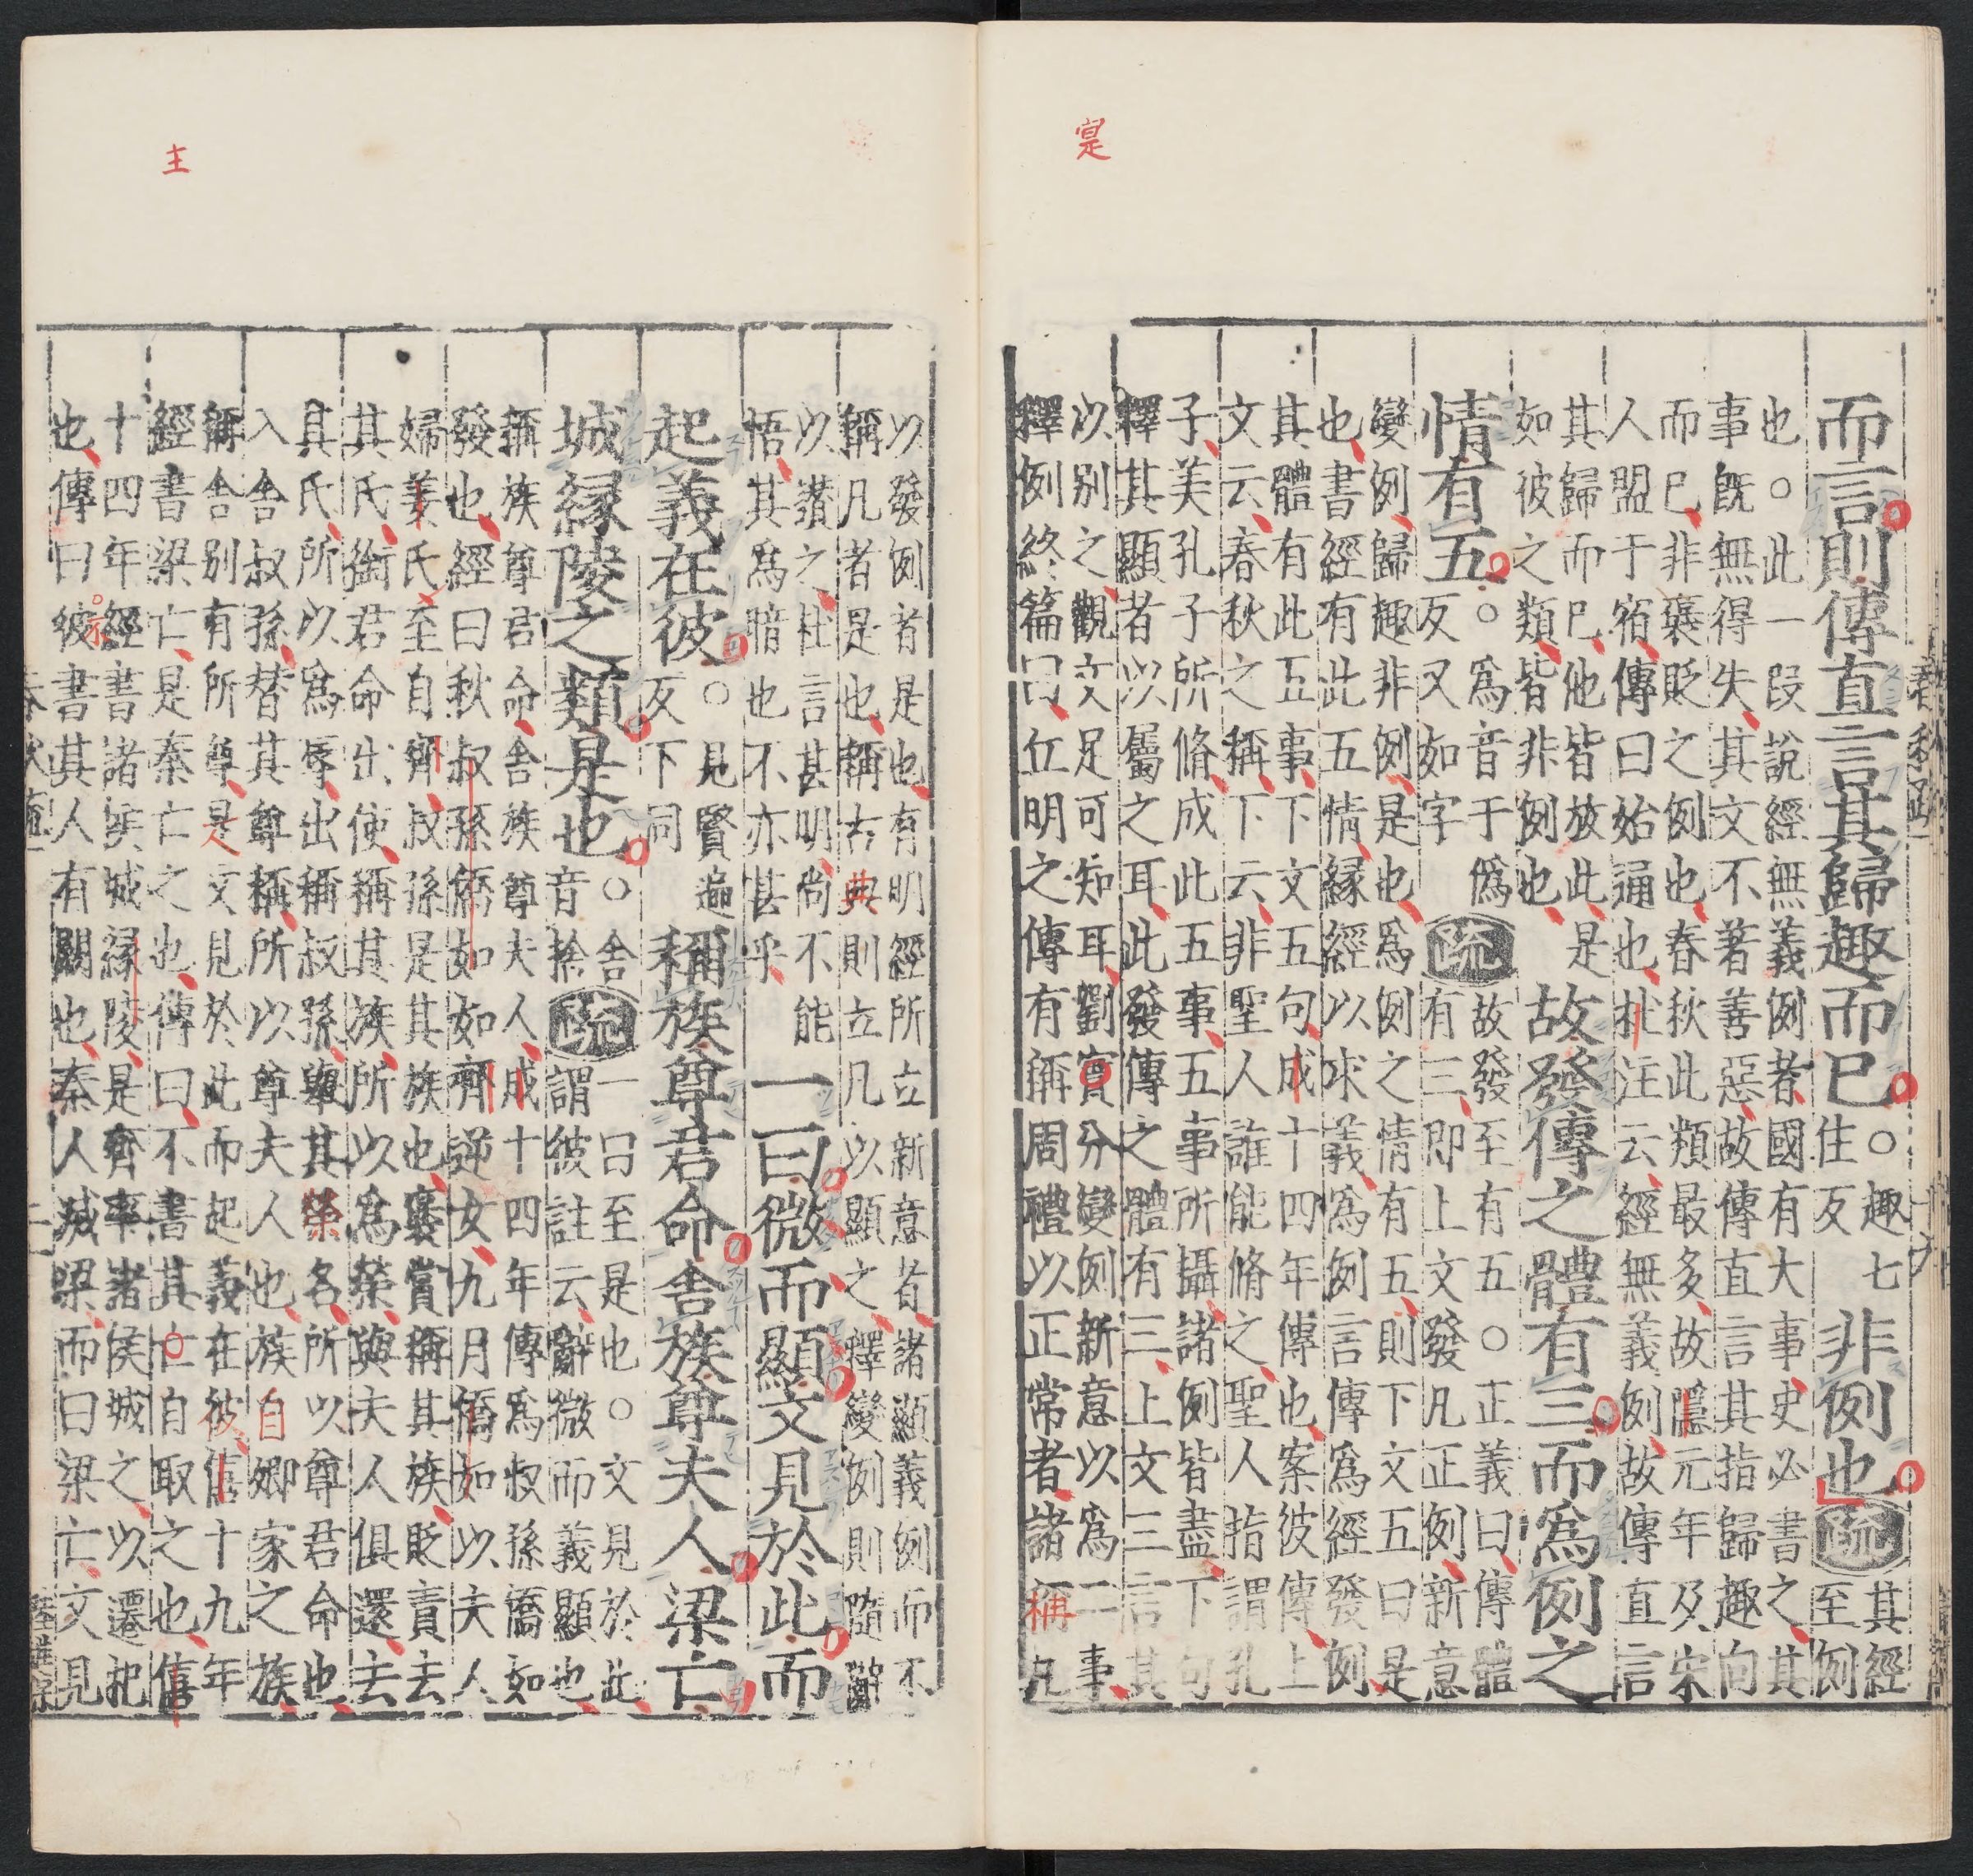 寔
而言則傳直言其歸趣而已○趣七
住反非例也疏其經
至例
也○此一段說經無義例者國有大事史必書之其
事既無得失其文不著善惡故傳直言其指歸趣向
而已非褒貶之例也春秋此類最多故隱元年及宋
人盟于宿傳曰始通也杜注云經無義例故傳直言
其歸而已他皆放此是
如彼之類皆非例也故發傳之體有三而爲例之
情有五○爲音于僞
反又如字疏故發至有五○正義曰傳體
有三即上文發凡正例新意
變例歸趣非例是也爲例之情有五則下文五曰是
也書經有此五情緣經以求義爲例言傳爲經發例
其體有此五事下文五句成十四年傳也案彼傳上
文云春秋之稱下云非聖人誰能脩之聖人指謂孔
子美孔子所脩成此五事五事所攝諸例皆盡下句
釋其顯者以屬之耳此發傳之體有三上文三言其
以別之觀文足可知耳劉實分變例新意以爲二事
釋例終篇曰丘明之傳有稱周禮以正常者諸稱凡
主
以發例者是也有明經所立新意者諸顯義例而不
稱凡者是也稱古典則立凡以顯之釋變例則隨辭
以讚之杜言甚明尚不能
悟其爲暗也不亦甚乎一曰微而顯文見於此而
起義在彼○見賢遍
反下同稱族尊君命舍族尊夫人梁亡
城緣陵之類是也○舍
音捨疏一曰至是也○文見於此
謂彼註云辭微而義顯也
稱族尊君命舍族尊夫人成十四年傳爲叔孫僑如
發也經曰秋叔孫僑如如齊逆女九月僑如以夫人
婦姜氏至自齊叔孫是其族也褒賞稱其族貶責去
其氏銜君命出使稱其族所以爲榮與夫人俱還去
其氏所以爲辱出稱叔孫舉其榮名所以尊君命也
入舍叔孫替其尊稱所以尊夫人也族自卿家之族
稱舍別有所尊是文見於此而起義在彼僖十九年
經書梁亡是秦亡之也傳曰不書其亡自取之也僖
十四年經書諸侯城緣陵是齊率諸侯城之以遷杞
也傳曰彼書其人有闕也秦人滅梁而曰梁亡文見